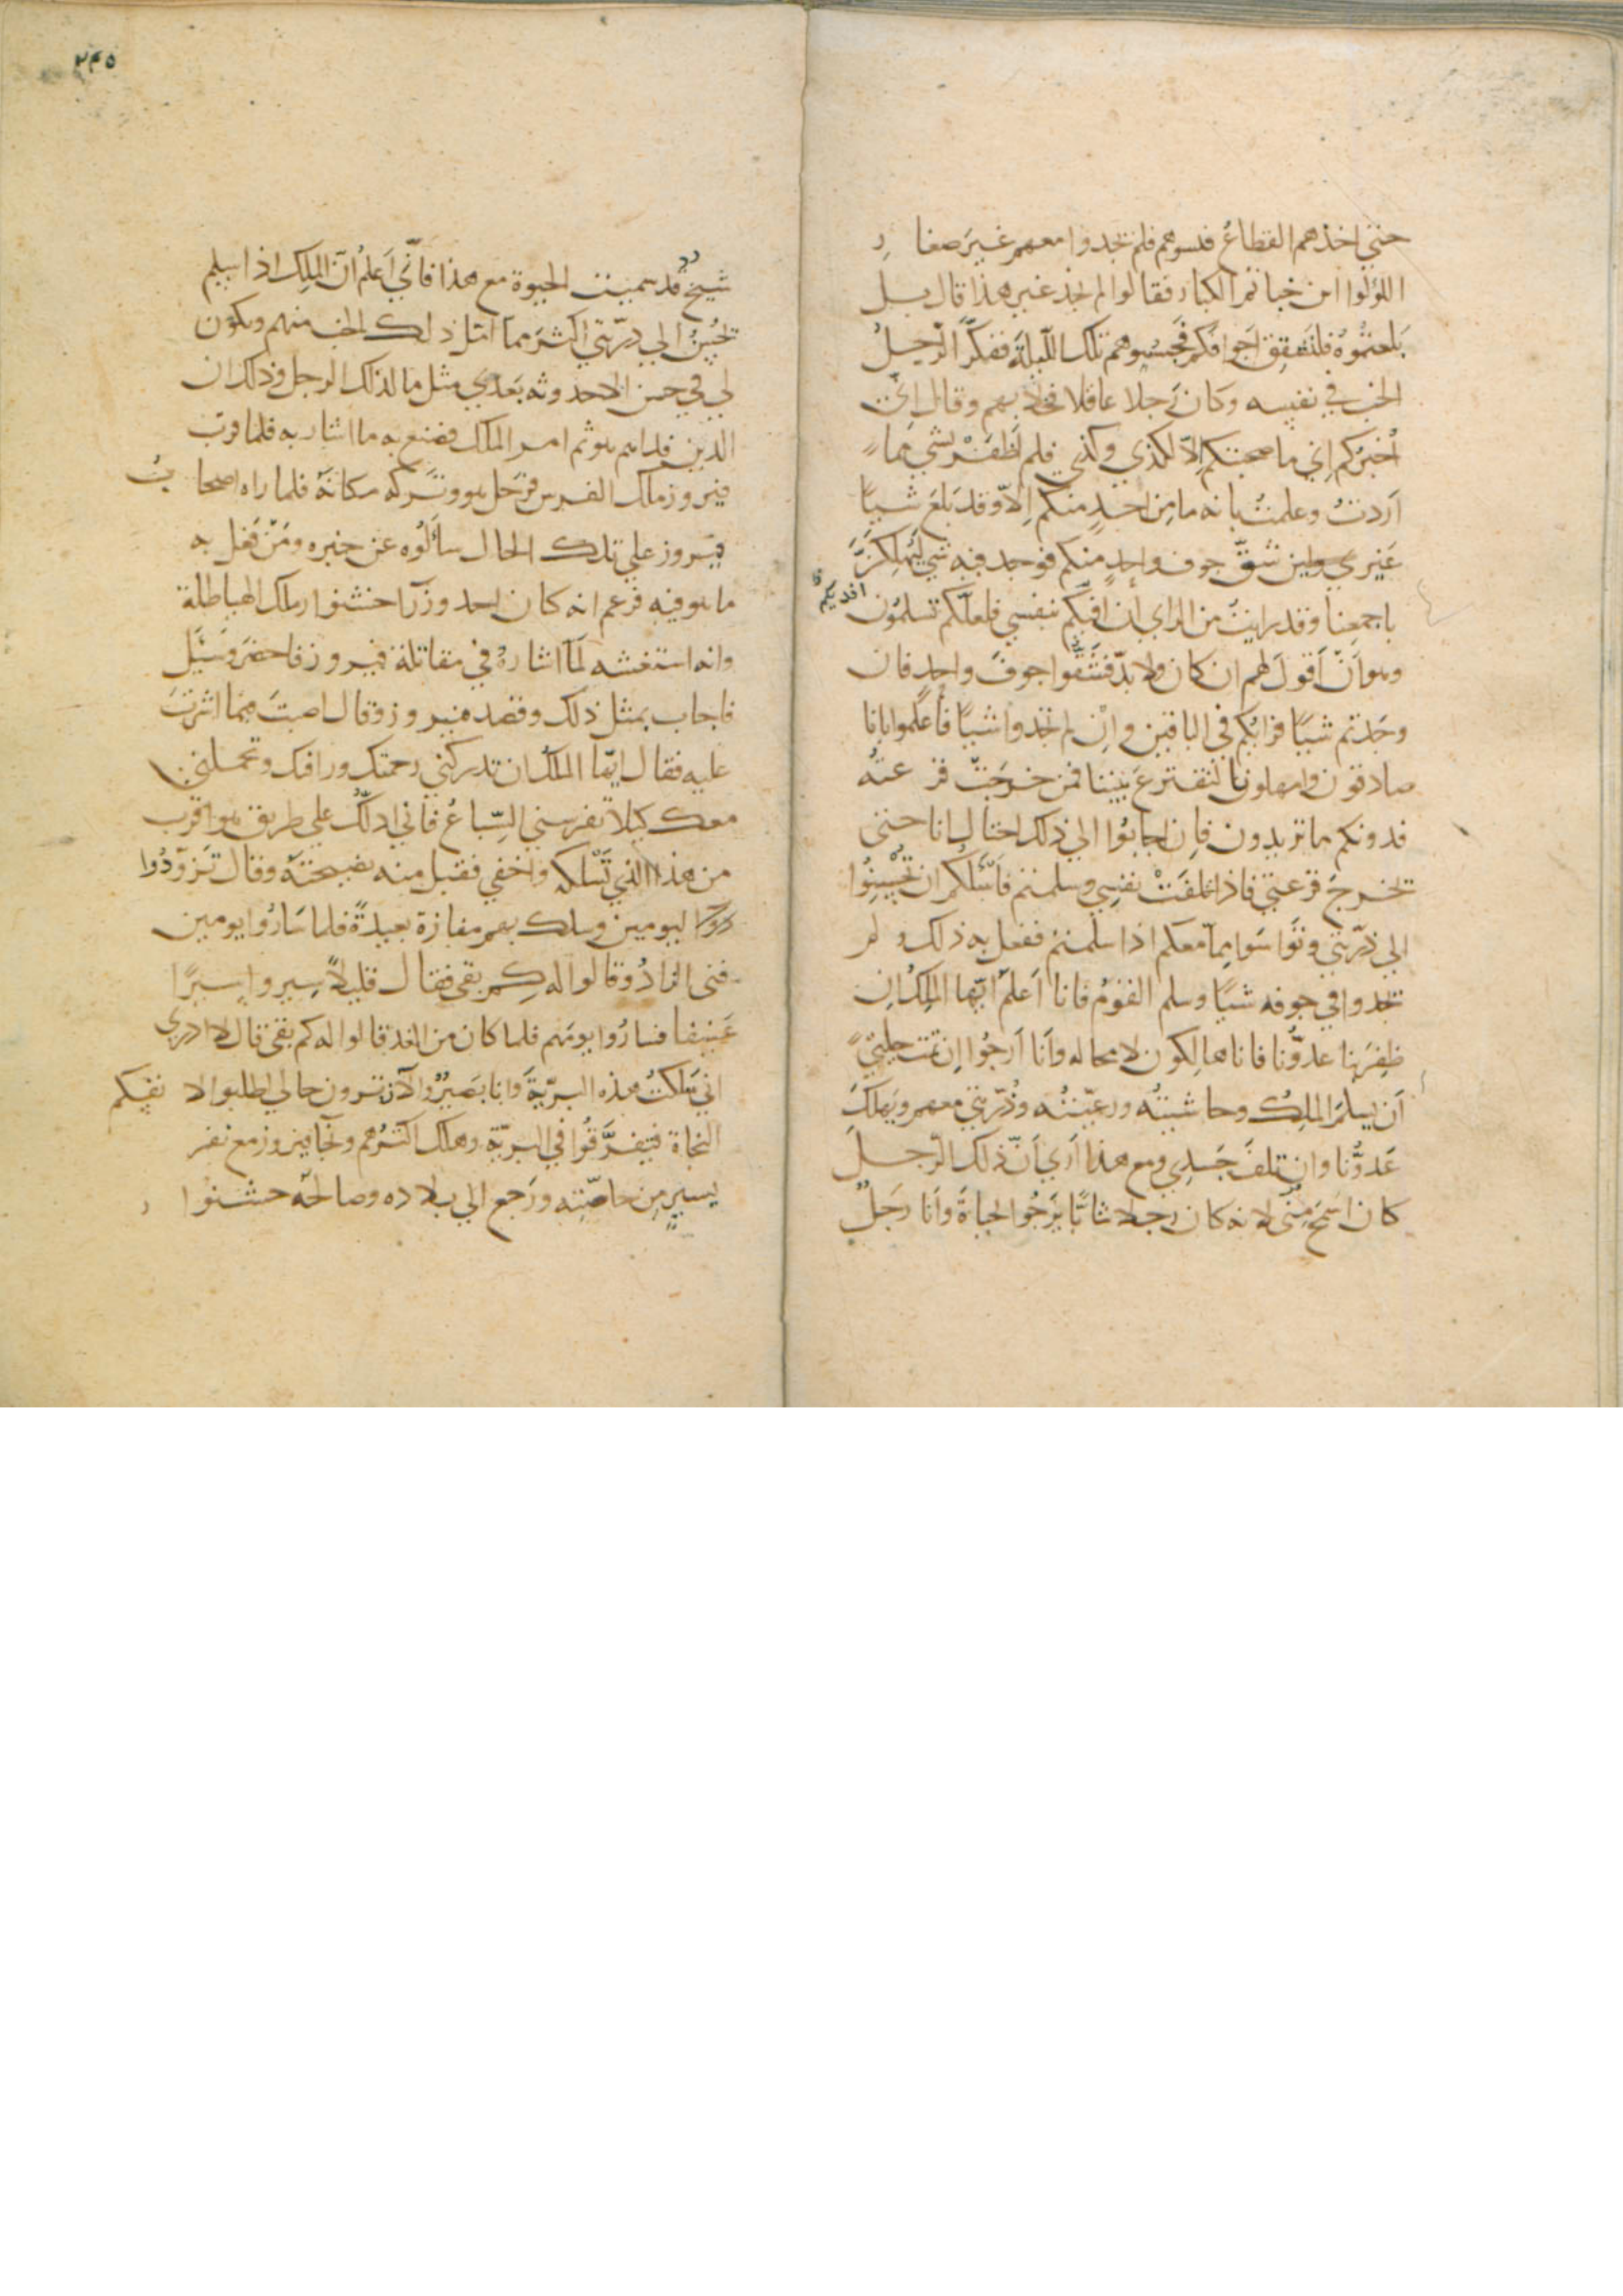 حتي اخذهم القطاع فلسوهم فلم يجدوا معهم غير صغار
اللؤلوا اين خباتم الكبار فقالوا لم نجد غير هذا قال بل
بلعتموه فلنشقق اجوافكم فحبسوهم تلك الليلة ففكر الرجل
الخب في نفسه وكان رجلا عاقلا فخلا بهم وقال اني
اخبركم اني ما صحبتكم الا لكذي وكذي فلم اظفر بشي مما
اردت وعلمت بانه ما من احد منكم الا وقد بلع شيا
غيري ولين شق جوف واحد منكم فوجد فيه شي ليهلكن
باجمعنا وقد رايت من الراي ان افيكم بنفسي فلعلكم تسلمون
افديكم
وهو ان اقول لهم ان كان ولا بد فشقوا جوف واحد فان
وجدتم شيا فرايكم في الباقين وان لم تجدوا شيا فاعلموا بانا
صادقون وامهلونا لنقترع بيننا فمن خرجت قرعته
فدونكم ما تريدون فان اجابوا الي ذلك احتال انا حتي
تخرج قرعتي فاذا تلفت نفسي وسلمتم فاسئلكم ان تحسنوا
الي ذريتي وتواسوا مما معكم اذا سلمتم ففعل به ذلك ولم
تجدوا في جوفه شيا وسلم القوم فانا اعلم ايها الملك ان
ظفر بنا عدونا فانا هالكون لا محالة وانا ارجوا ان تمت حيلتي
ان يسلم الملك وحاشيته ورعيته وذريتي معهم ويهلك
عدونا وان تلف جسدي ومع هذا اري ان ذلك الرجل
كان اسمح مني لانه كان رجلا شابا يرجوا الحياة وانا رجل
٢٤٥
شيخ قد سميت الحيوة مع هذا فاني اعلم ان الملك اذا سلم
يحسن الي ذريتي اكثر مما امل ذلك الخب منهم ويكون
لي في حسن الاحدوثه بعدي مثل ما لذلك الرجل وذلك ان
الدين فلما تم امر الملك فصنع به ما اشار به فلما قرب
فيروز ملك الفرس فرحل هو وتركه مكانه فلما راه اصحاب
فيروز علي تلك الحال سألوه عن خبره ومن فعل به
ما هو فيه فزعم انه كان احد وزرا خشنوار ملك الهياطلة
وانه استغشه لما اشاره في مقاتلة فيروز فاحضر وسئل
فاجاب بمثل ذلك وقصد فيروز وقال اصبت فيما اشرت
عليه فقال ايها الملك ان تدركني رحمتك ورافتك وتحملني
معك كيلا تفرسني السباع فاني ادلك علي طريق هو اقرب
من هذا الذي تسلكه واخفي فقبل منه نصيحته وقال تزودوا
ليومين وسلك بهم مفازة بعيدة فلما ساروا يومين
فني الزاد وقالوا له كم بقي فقال قليلا سيروا سيرا
عنيفا فساروا يومهم فلما كان من الغد قالوا له كم بقي قال لا ادري
اني سلكت هذه البرية وانا بصير والآن ترون حالي اطلبوا لانفسكم
النجاة فتفرقوا في البرية وهلك اكثرهم ونجا فيروز مع نفر
يسير من خاصته ورجع الي بلاده وصالحه خشنوار